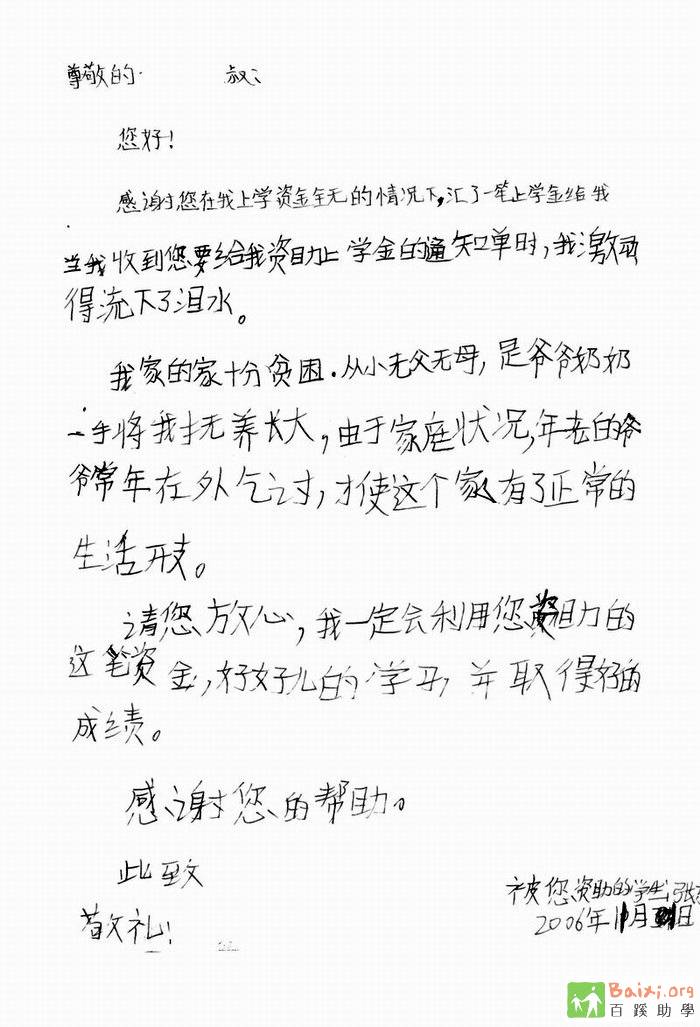 尊敬的 叔:
您好!
感谢您在我上学资金全无的情况下,汇了一笔上学金给我
当我收到您要给我资助上学金的通知单时,我激动
得流下了泪水。
我家的家十分贫困.从小无父无母,是爷爷奶奶
一手将我抚养长大,由于家庭状况,年老的爷
爷常年在外乞讨,才使这个家有了正常的
生活开支。
请您放心,我一定会利用您资助的
这笔资金,好好儿的学习,并取得好的
成绩。
感谢您的帮助。
此致
敬礼!
被您资助的学生:张
2006年11月 日
Baixi.org
百蹊助學